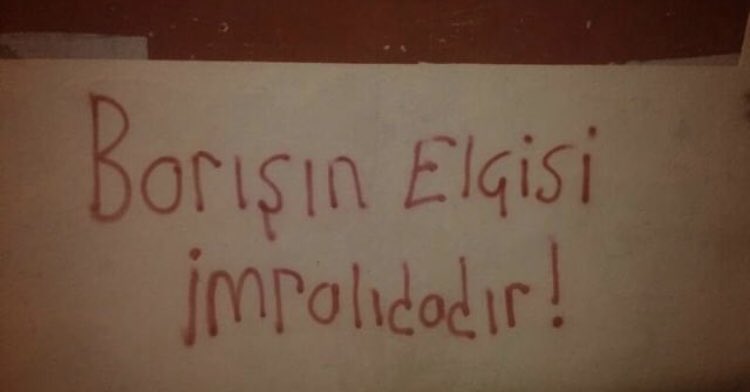 Barışın Elçisi
İmralıdadır!